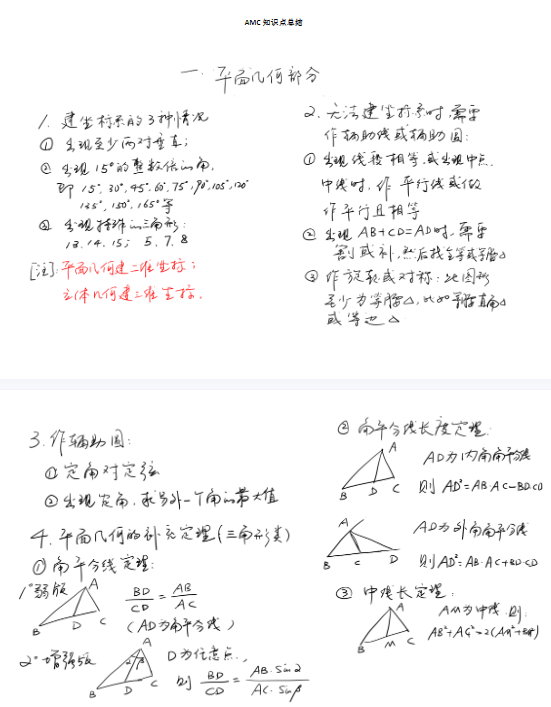 AMC 知识点总结
一. 平面几何部分
1. 建坐标系的3种情况
① 出现至少两对垂直;
② 出现15°的整数倍的角,
即 15°, 30°, 45°, 60°, 75°, 90°, 105°, 120°
135°, 150°, 165°等
③ 出现特殊的三角形:
13. 14. 15; 5. 7. 8
[注]: 平面几何建二维坐标;
立体几何建三维坐标.
2. 无法建坐标系时, 需要
作辅助线或辅助圆:
① 出现线段相等, 或出现中点.
中线时, 作 平行线或做
作平行且相等
② 出现 AB+CD=AD时, 需要
割或补, 然后找全等或等腰△
③ 作旋转或对称: 此图形
至少为等腰△, 比如等腰直角△
或等边△
3. 作辅助圆:
① 定角对定弦
② 出现定角, 求另外一个角的最大值
4. 平面几何的补充定理(三角形类)
① 角平分线定理:
1° 弱版
A
B
D
C
BD/CD = AB/AC
(AD为角平分线)
2° 增强版
A
α β
B
D
C
D为任意点,
则 BD/CD = AB·sinα/AC·sinβ
② 角平分线长度定理:
A
B
D
C
AD为内角角平分线
则 AD²=AB·AC-BD·CD
A
B
C
D
AD为外角角平分线
则AD²=AB·AC+BD·CD
③ 中线长定理:
A
B
M
C
AM为中线, 则:
AB²+AC²=2(AM²+BM²)